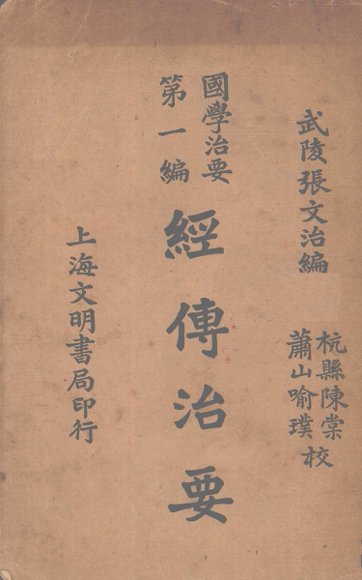 武陵張文治編
杭縣陳棠
蕭山喻璞校
國學治要
第一編
經傳治要
上海文明書局印行